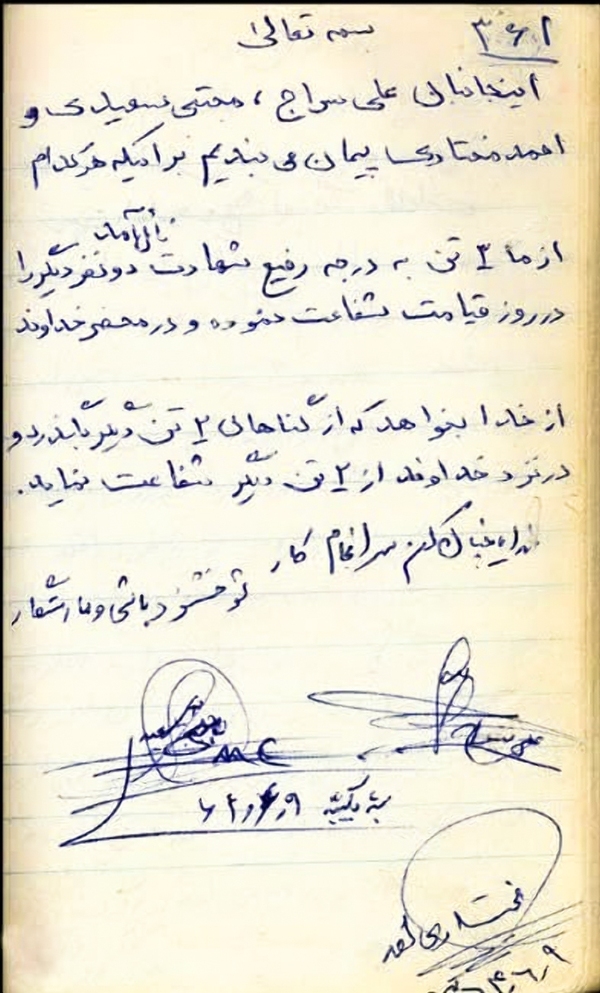 ۳۶۲
بسمه تعالی
اینجانبان علی سراج ، مجتبی سعیدی و
احمد مختاری پیمان می بندیم براینکه هرکدام
نائل آمد
از ما ۳ تن به درجه رفیع شهادت دو نفر دیگر را
در روز قیامت شفاعت نموده و در محضر خداوند
از خدا بخواهد که از گناهان ۲ تن دیگر بگذرد و
در نزد خداوند از ۲ تن دیگر شفاعت نماید.
خدایا چنان کن سرانجام کار
تو خشنود باشی و ما رستگار
علی سراج
یکشنبه
مختاری احمد